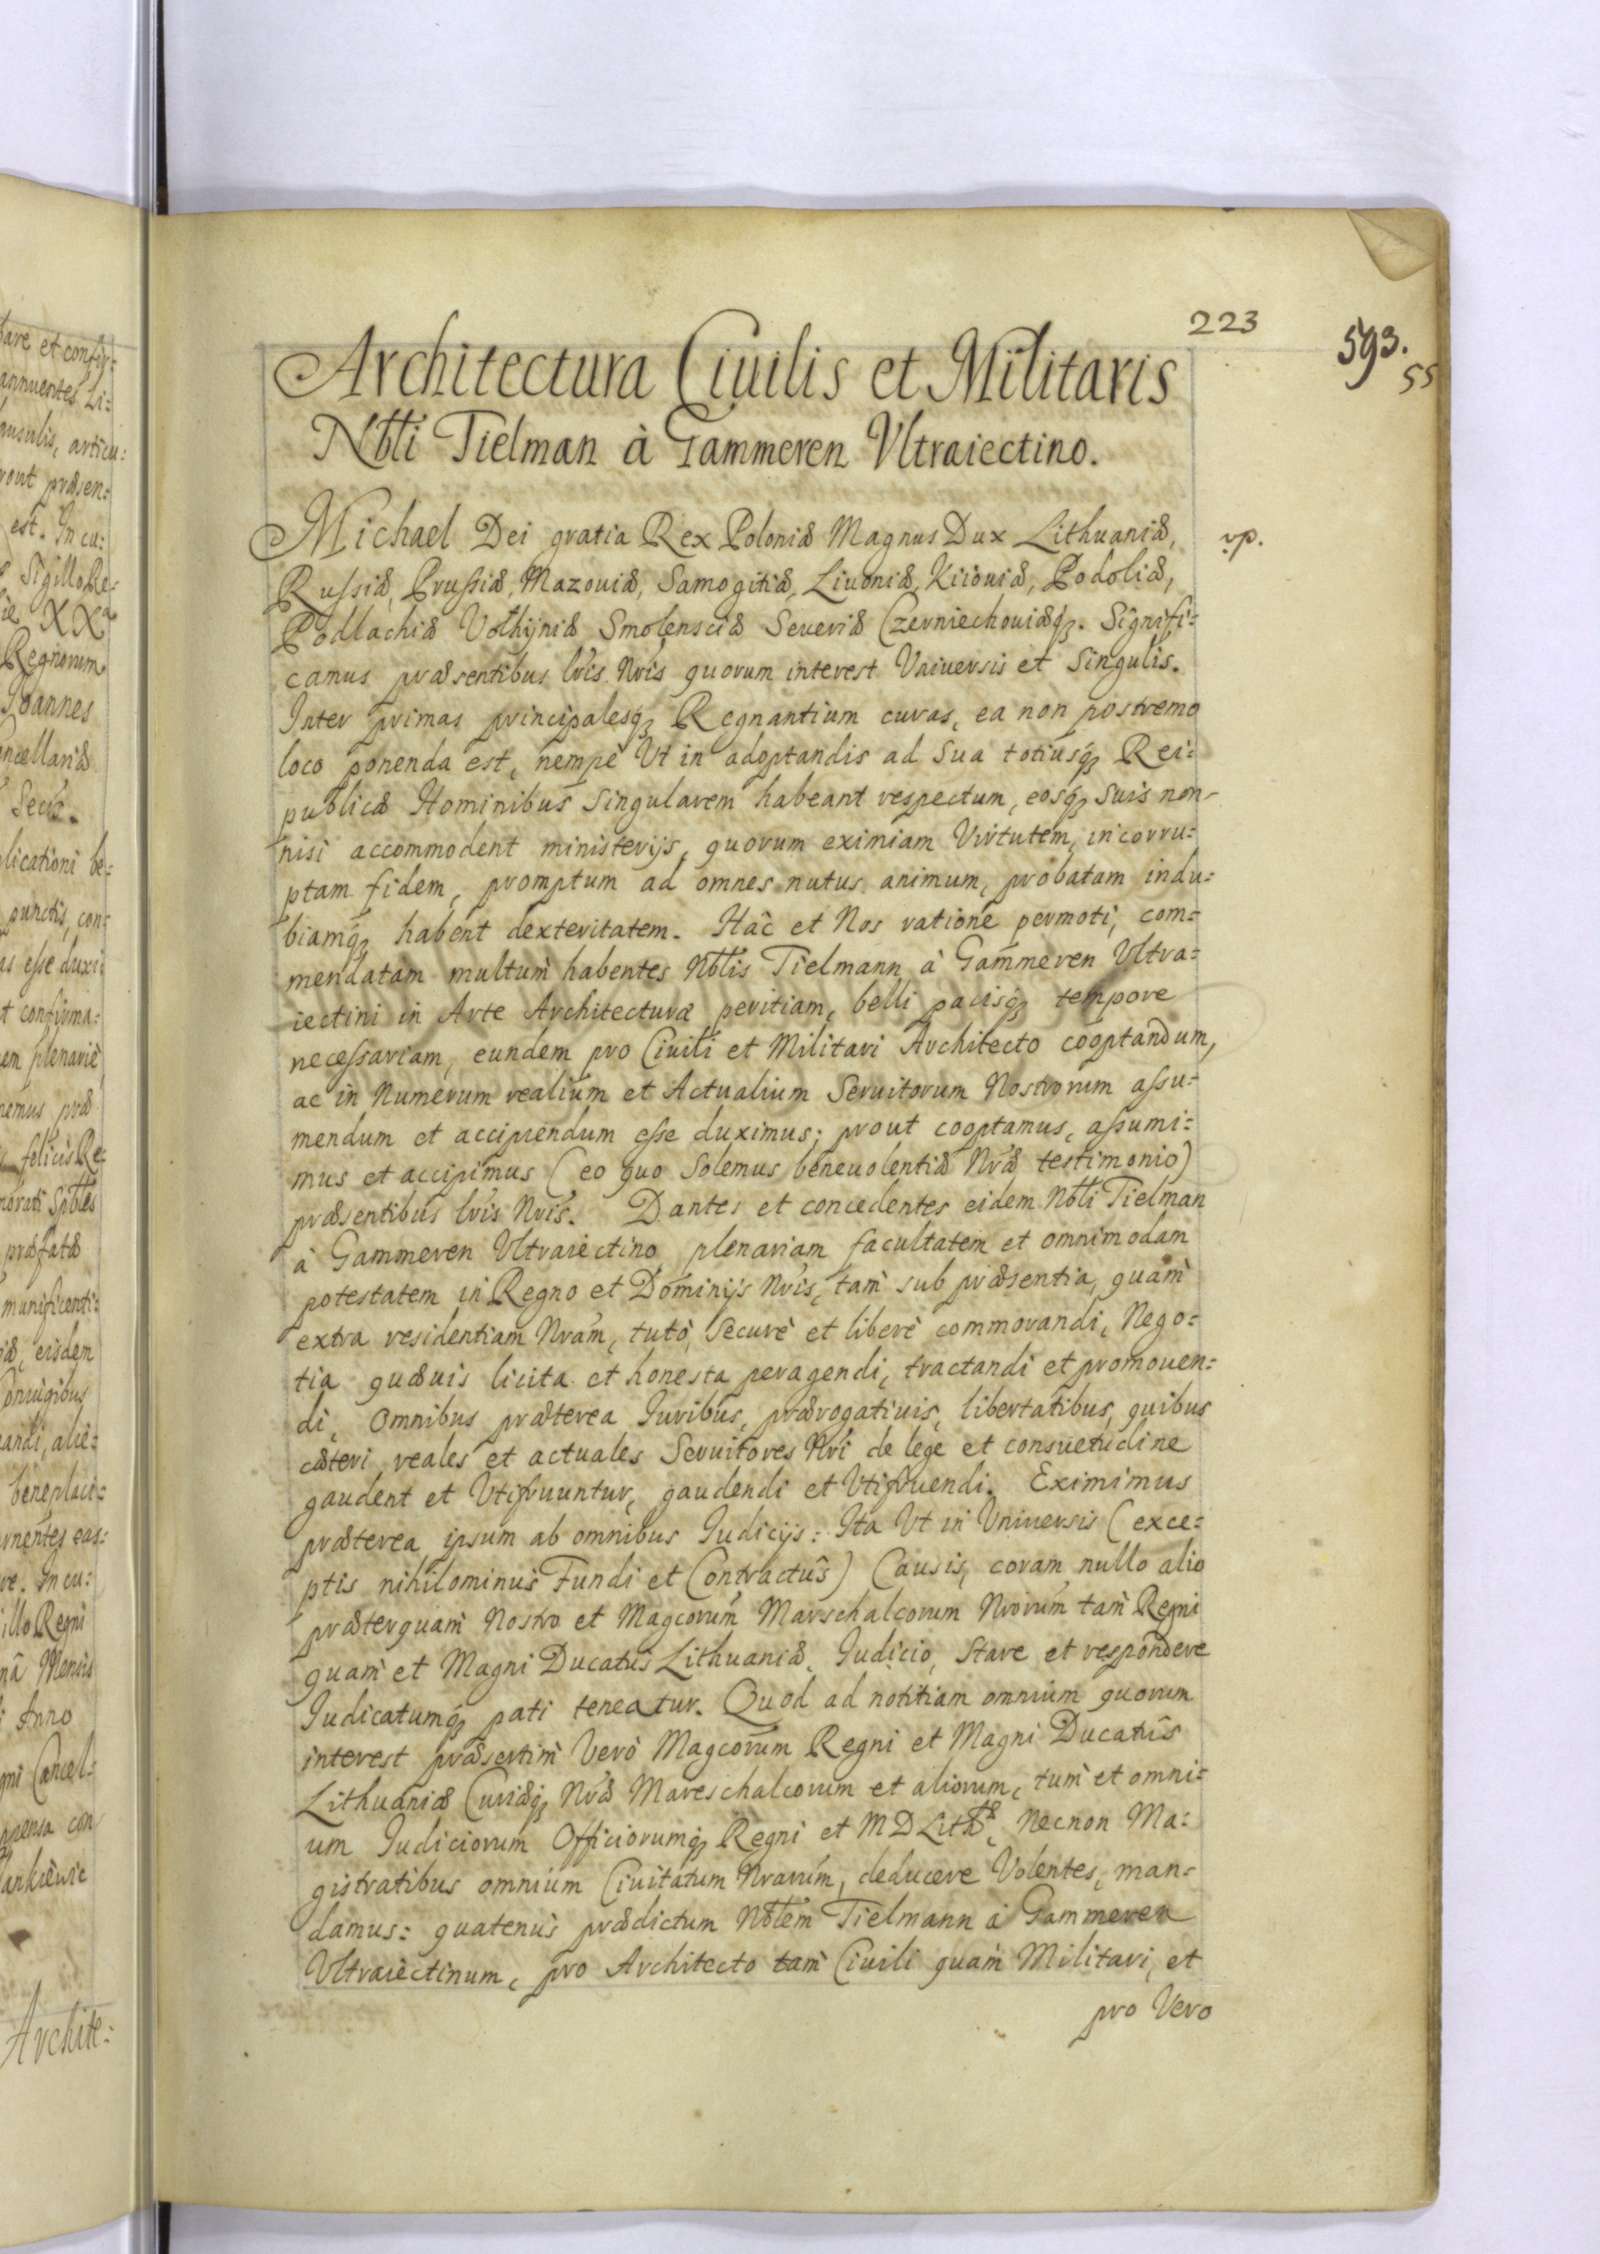 223
593.
55
Architectura Ciuilis et Militaris
Nbli Tielman à Gammeren Vltraiectino.
Michael Dei gratia Rex Poloniæ Magnus Dux Lithuaniæ,
vp.
Russiæ, Prussiæ, Mazouiæ, Samogitiæ, Liuoniæ, Kiiouiæ, Podoliæ,
Podlachiæ Volhijniæ Smolensciæ Seueriæ Czerniechouiæq3. Signifi:
camus præsentibus lris Nris quorum interest Vniuersis et Singulis.
Inter primas principalesq3 Regnantium curas, ea non postremo
loco ponenda est, nempè Vt in adoptandis ad Sua totiusq3 Rei:
publicæ Hominibus Singularem habeant respectum, eosq3 Suis non-
nisi accommodent ministerijs, quorum eximiam Virtutem, incorru:
ptam fidem, promptum ad omnes nutus animum, probatam indu:
biamq3 habent dexteritatem. Hâc et Nos ratione permoti, com:
mendatam multum habentes Nblis Tielmann à Gammeren Vltra:
iectini in Arte Architecturæ peritiam, belli pacisq3 tempore
necessariam, eundem pro Ciuili et Militari Architecto cooptandum,
ac in Numerum realium et Actualium Seruitorum Nostrorum assu:
mendum et accipiendum esse duximus; prout cooptamus, assumi:
mus et accipimus (eo quo Solemus beneuolentiæ Nræ testimonio)
præsentibus lris Nris. Dantes et concedentes eidem Nbli Tielman
à Gammeren Vltraiectino plenariam facultatem et omnimodam
potestatem in Regno et Dominijs Nris, tam sub præsentia, quàm
extra residentiam Nram, tutò, Securè et liberè commorandi, Nego:
tia quæuis licita et honesta peragendi, tractandi et promouen:
di, Omnibus præterea Iuribus, prærogatiuis, libertatibus, quibus
cæteri reales et actuales Seruitores Nri de lege et consuetudine
gaudent et Vtifruuntur, gaudendi et Vtifruendi. Eximimus
præterea ipsum ab omnibus Iudicijs: Ita Vt in Vniuersis (exce:
ptis nihilominus Fundi et Contractûs) Causis, coram nullo alio
præterquam Nostro et Magcorum Marschalcorum Nrorum tam Regni
quam et Magni Ducatus Lithuaniæ, Iudicio, Stare et respondere
Iudicatumq3 pati teneatur. Quod ad notitiam omnium quorum
interest præsertim Verò Magcorum Regni et Magni Ducatûs
Lithuaniæ Curiæq3 Nræ Mareschalcorum et aliorum, tum et omni:
um Iudiciorum Officiorumq3 Regni et MDLithæ, Necnon Ma:
gistratibus omnium Ciuitatum Nrarum, deducere Volentes, man:
damus: quatenus prædictum Nblem Tielmann à Gammeren
Vltraiectinum, pro Architecto tam Ciuili quam Militari, et
pro Vero